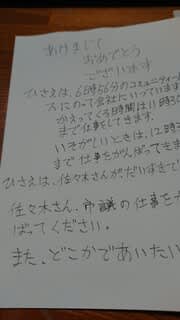 あけまして
おめでとう
ございます
ひさえは、6時56分のコミュニティーバ
スにのって会社にいっています
かえってくる時間は11時30
まで仕事をしてきます。
いそがしいときは、12時3
まで仕事をがんばってきま
ひさえは、佐々木さんがだいすきで
佐々木さん、市議の仕事をが
ばってください。
また、どこかであいたい